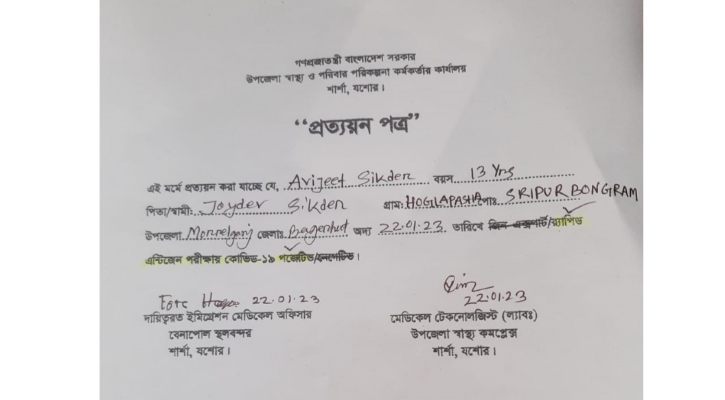 গণপ্রজাতন্ত্রী বাংলাদেশ সরকার
উপজেলা স্বাস্থ্য ও পরিবার পরিকল্পনা কর্মকর্তার কার্যালয়
শার্শা, যশোর।
“প্রত্যয়ন পত্র”
এই মর্মে প্রত্যয়ন করা যাচ্ছে যে, Avijeet Sikder বয়স 13 Yrs
পিতা/স্বামী: Joydev Sikder গ্রাম: HOGLAPASHA পোঃ SRIPUR BONGRAM
উপজেলা Morrelganj জেলাঃ Bagerhat অদ্য 22.01.23 তারিখে জিন এক্সপার্ট/র‍্যাপিড
এন্টিজেন পরীক্ষায় কোভিড-১৯ পজেটিভ/নেগেটিভ।
22.01.23
22.01.23
দায়িত্বরত ইমিগ্রেশন মেডিকেল অফিসার মেডিকেল টেকনোলজিস্ট (ল্যাবঃ)
বেনাপোল স্থলবন্দর উপজেলা স্বাস্থ্য কমপ্লেক্স
শার্শা, যশোর। শার্শা, যশোর।